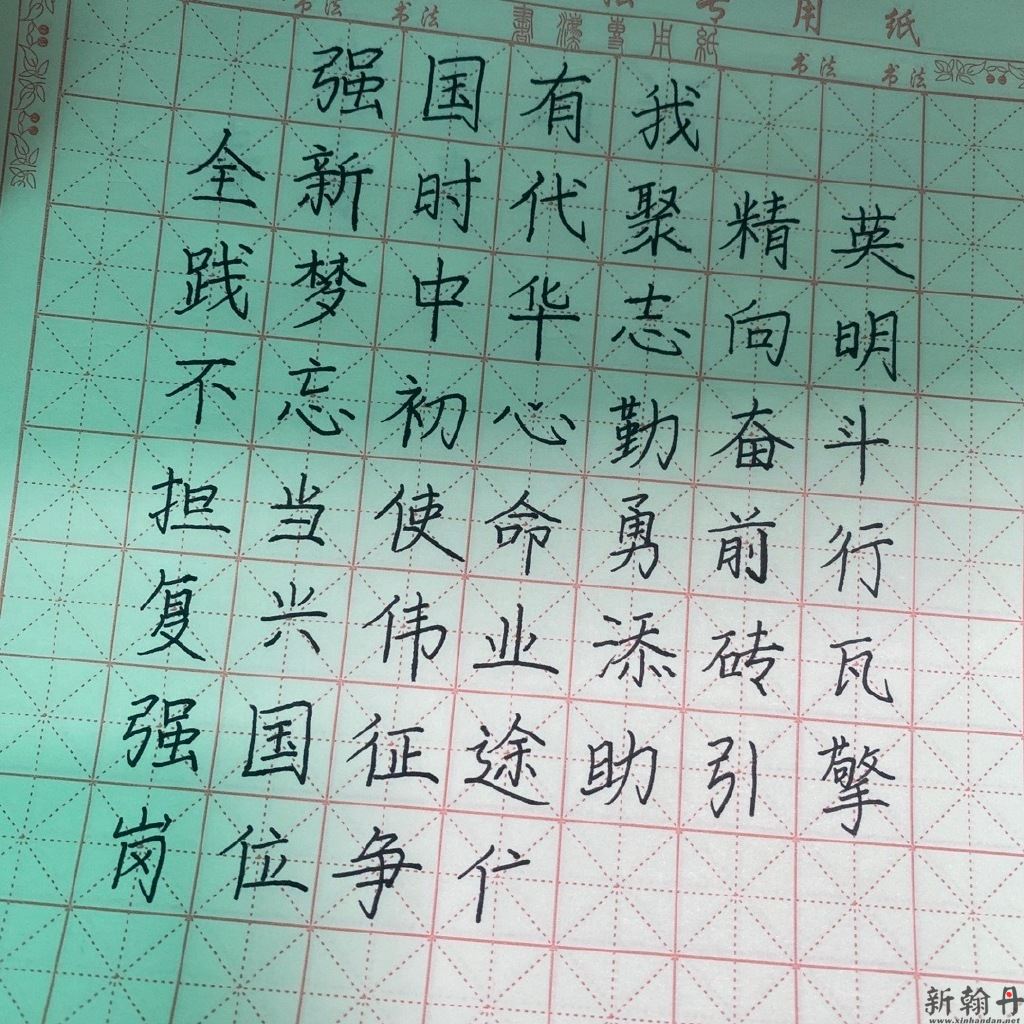 书法 书法 法专用纸
書法專用紙 书法 书法
强国有我
全新时代聚精英
践梦中华志向明
不忘初心勤奋斗
担当使命勇前行
复兴伟业添砖瓦
强国征途助引擎
岗位争
新翰丹
www.xinhandan.net